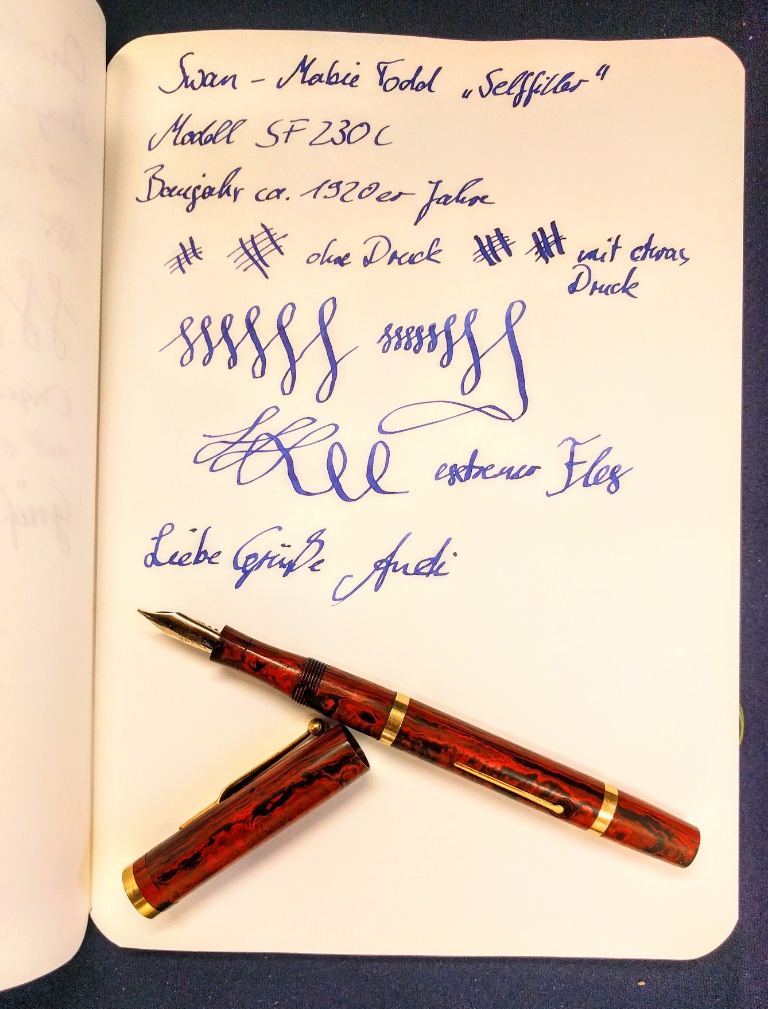 Swan - Mabie Todd „Selffiller“
Modell SF 230 C
Baujahr ca. 1920er Jahre
ohne Druck mit etwas
Druck
extremer Flex
Liebe Grüße Andi